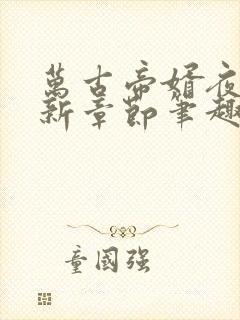 萬古帝婿夜
新章節筆趣
童國强